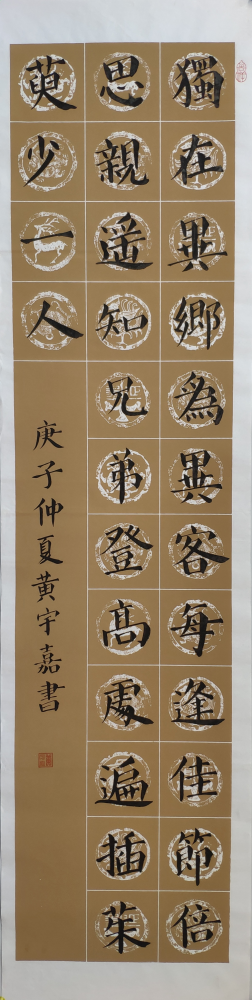 獨在異鄉為異客每逢佳節倍
思親遥知兄弟登髙處遍插茱
萸少一人
庚子仲夏黄宇嘉書